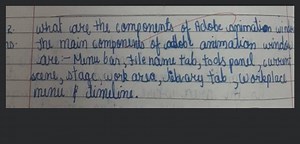 2. What are the components of Adobe animation window
no- The main components of adobe animation window
are:- Menu bar, file name tab, tools panel, current
scene, stage, work area, library tab, workplace
menu & timeline.